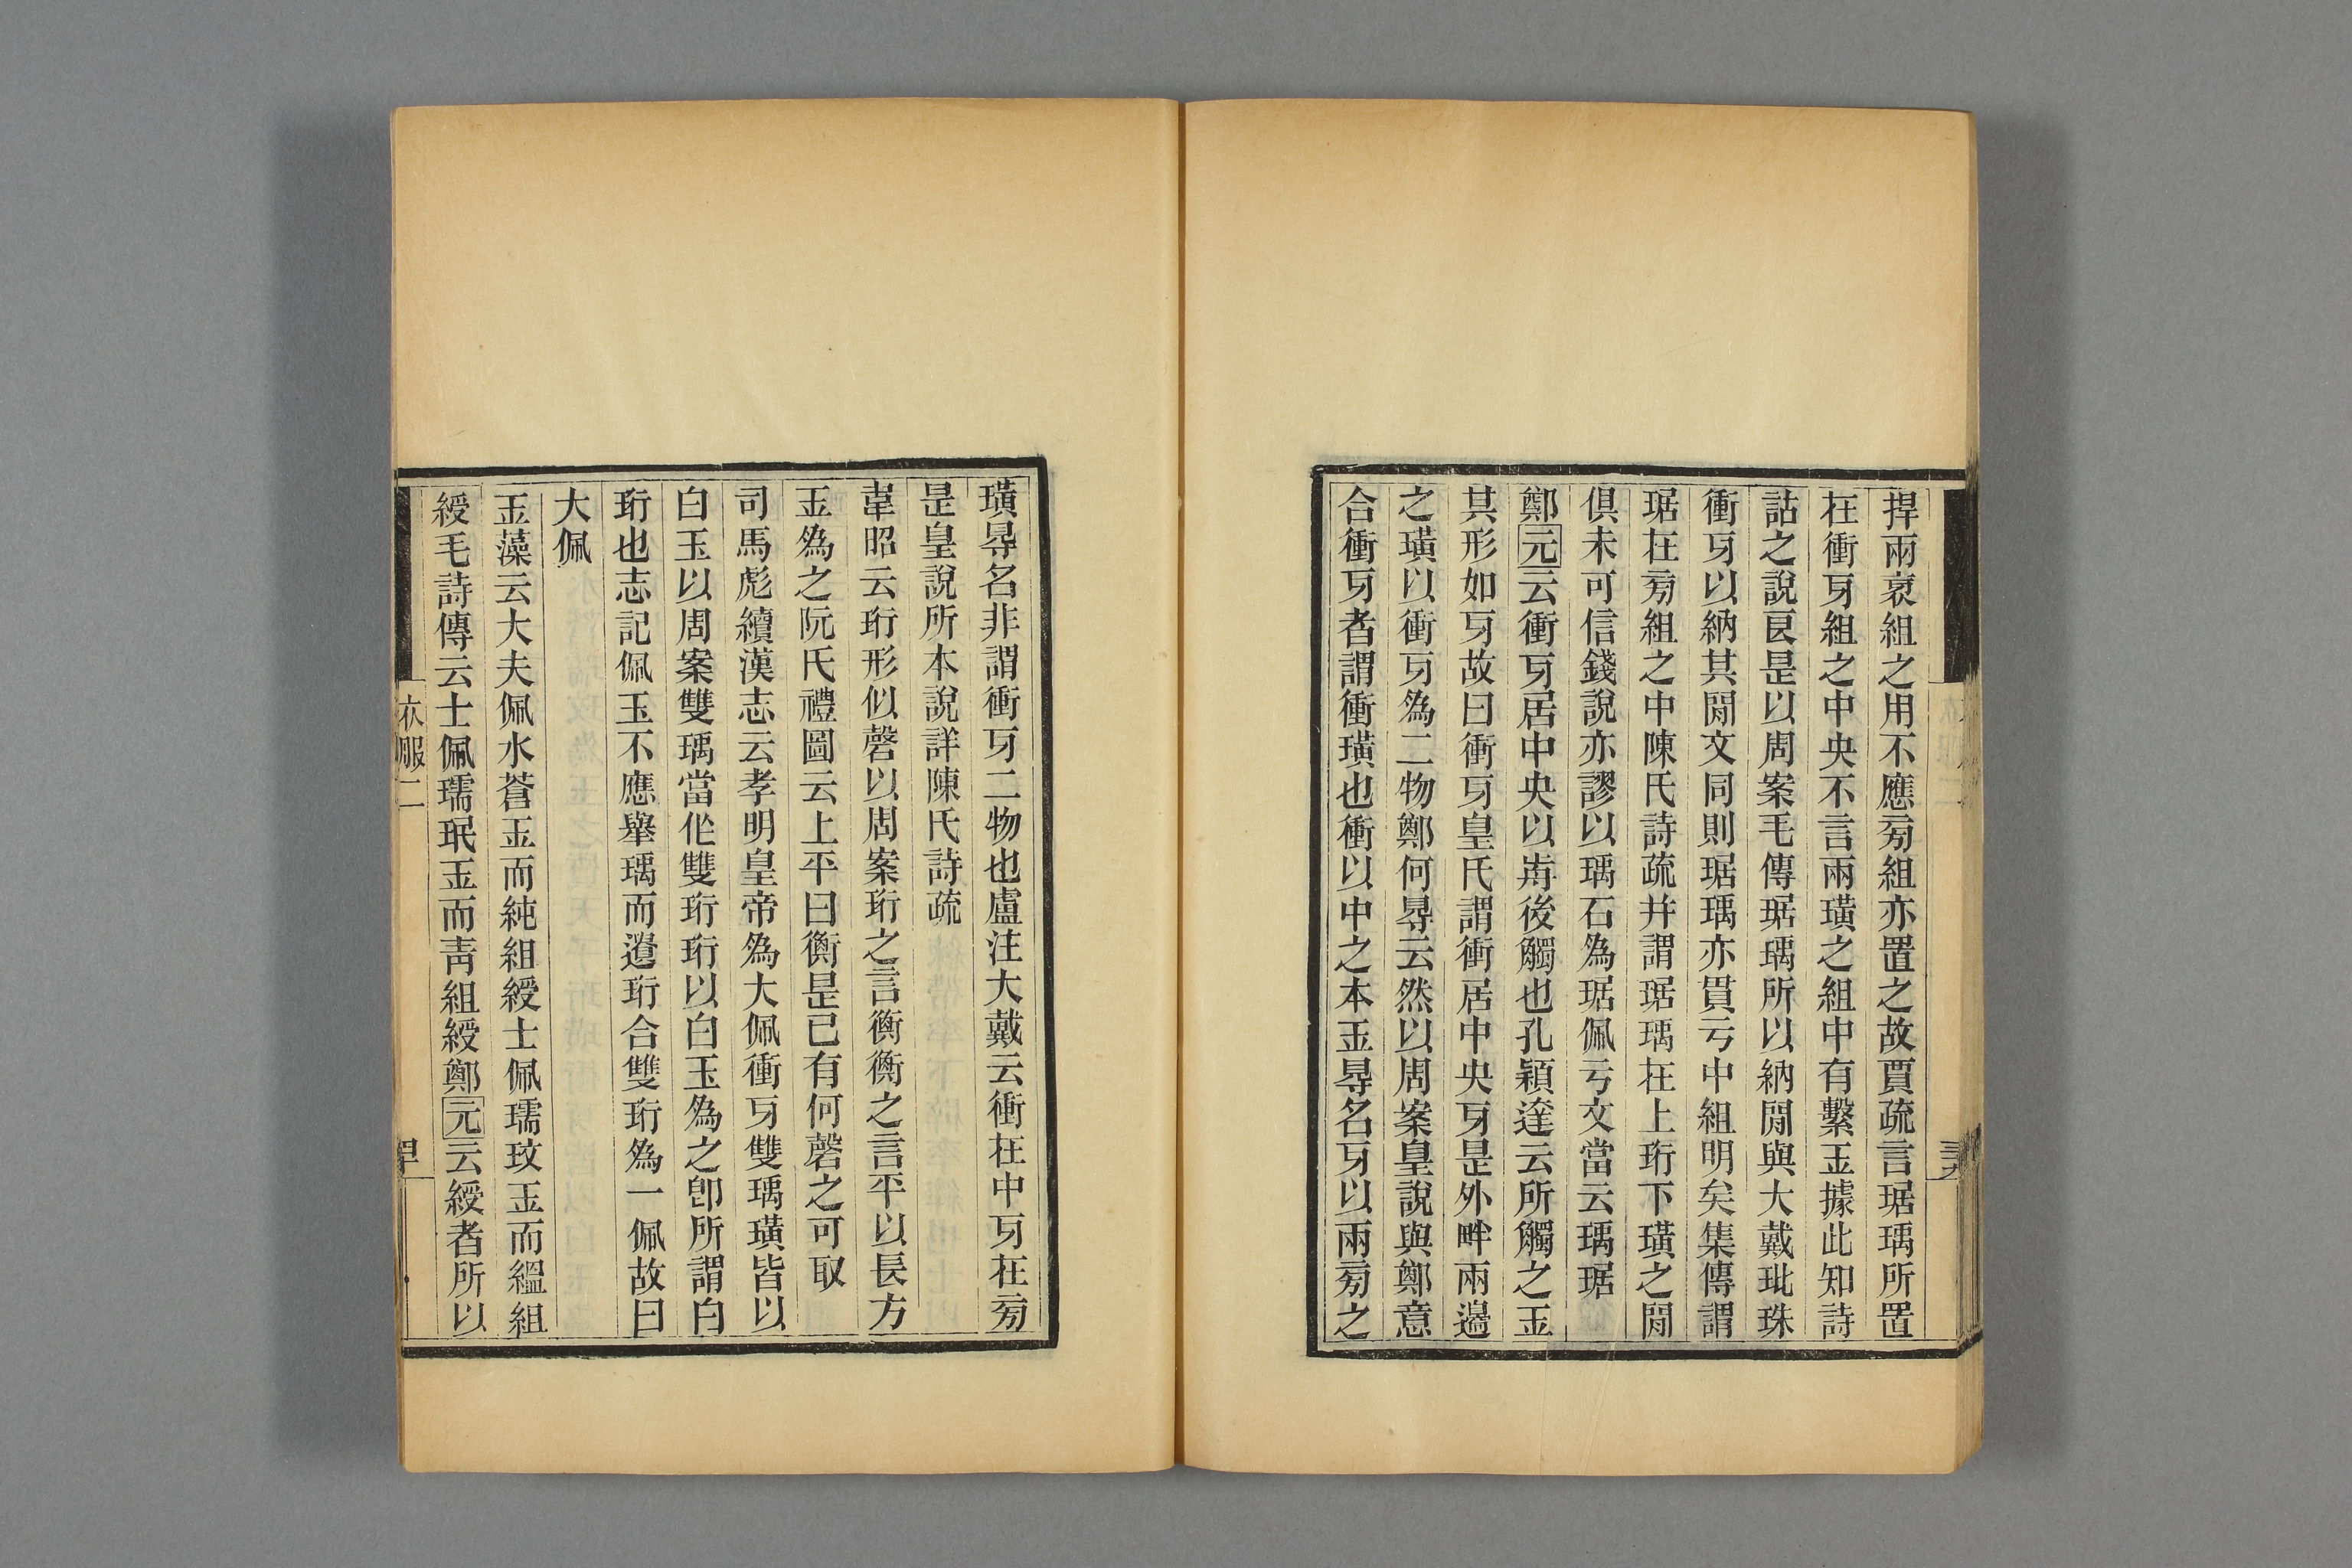 捍兩衺組之用不應㫄組亦置之故賈疏言琚瑀所置
在衝牙組之中央不言兩璜之組中有繫玉據此知詩
詁之說㫐是以周案毛傳琚瑀所以納閒與大戴玭珠
衝牙以納其閒文同則琚瑀亦貫亏中組明矣集傳謂
琚在㫄組之中陳氏詩疏幷謂琚瑀在上珩下璜之閒
俱未可信錢說亦謬以瑀石為琚佩亏文當云瑀琚
鄭元云衝牙居中央以歬後觸也孔穎達云所觸之玉
其形如牙故曰衝牙皇氏謂衝居中央牙是外畔兩邊
之璜以衝牙為二物鄭何㝵云然以周案皇說與鄭意
合衝牙者謂衝璜也衝以中之本玉㝵名牙以兩㫄之
璜㝵名非謂衝牙二物也盧注大戴云衝在中牙在㫄
是皇說所本說詳陳氏詩疏
韋昭云珩形似磬以周案珩之言衡衡之言平以長方
玉為之阮氏禮圖云上平曰衡是已有何磬之可取
司馬彪續漢志云孝明皇帝為大佩衝牙雙瑀璜皆以
白玉以周案雙瑀當作雙珩珩以白玉為之卽所謂白
珩也志記佩玉不應舉瑀而遺珩合雙珩為一佩故曰
大佩
玉藻云大夫佩水蒼玉而純組綬士佩瓀玟玉而縕組
綬毛詩傳云士佩瓀珉玉而靑組綬鄭元云綬者所以
衣服二